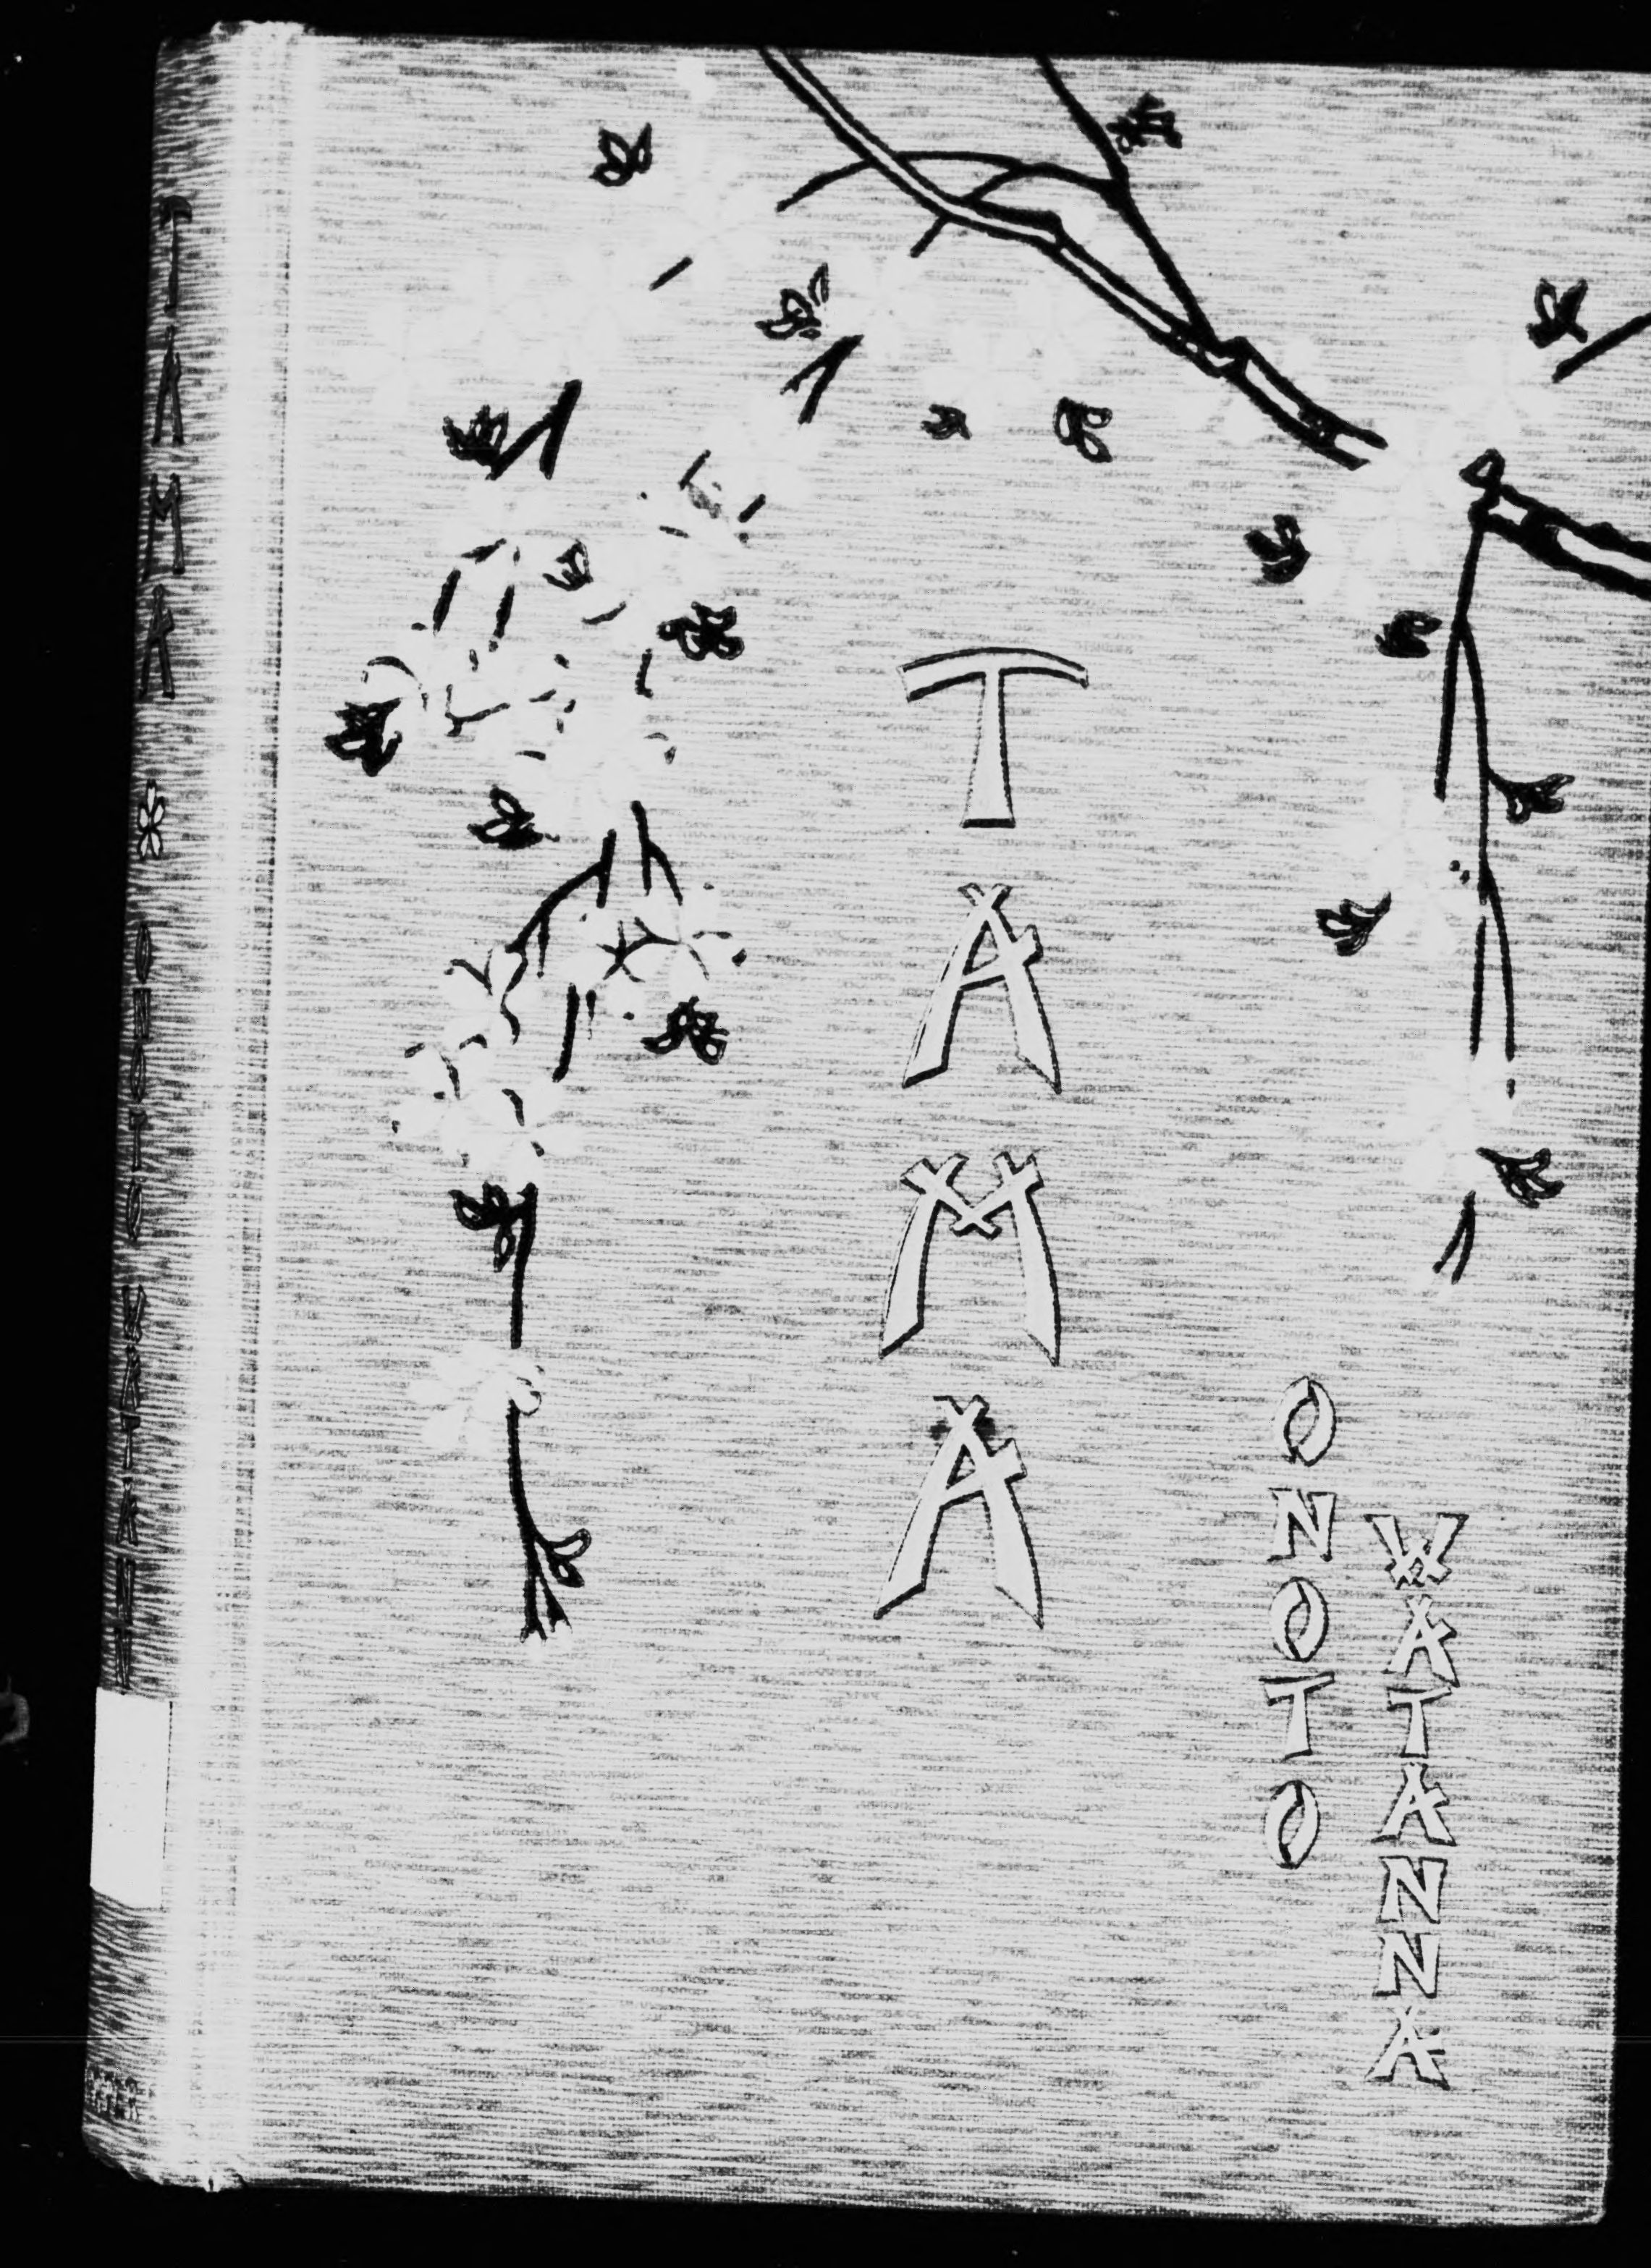 TAMA
ONOTO
WATANNA
TAMA ONOTO WATANN